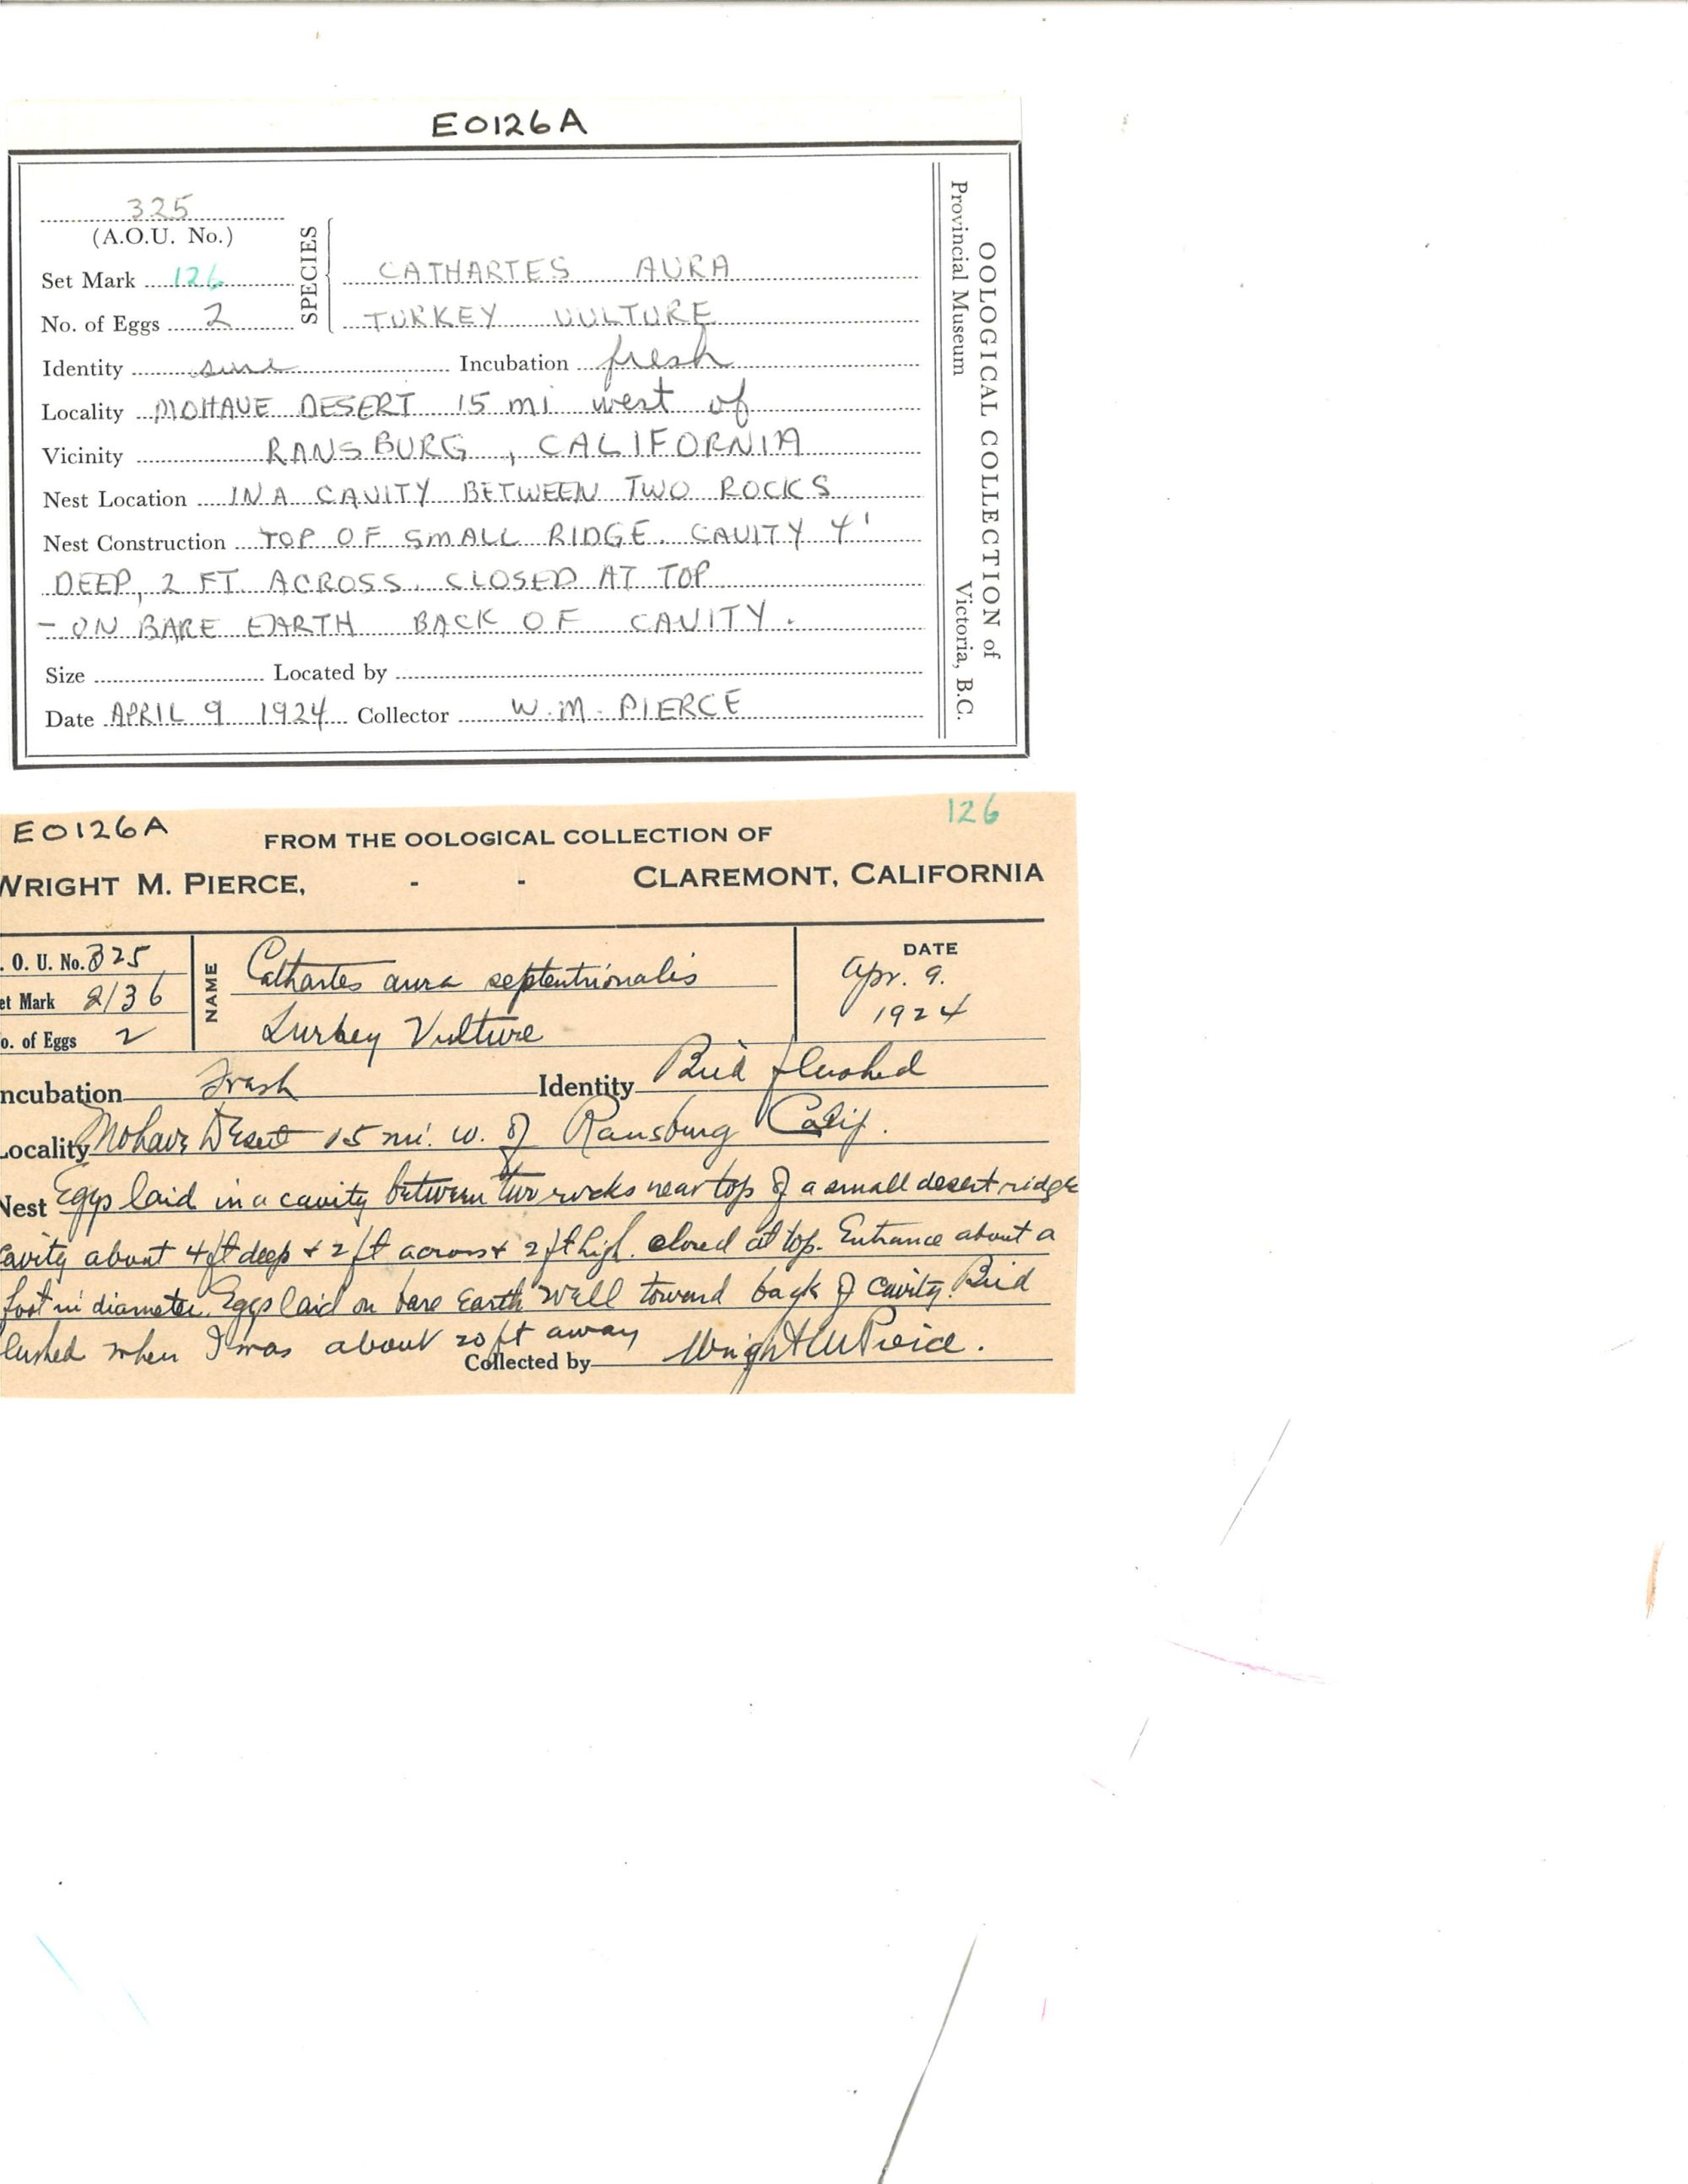 E0126A
325
(A.O.U. No.)
SPECIES
Set Mark 126
CATHARTES AURA
No. of Eggs 2
TURKEY VULTURE
Identity sure Incubation fresh
Locality MOHAVE DESERT 15 mi west of
Vicinity RANSBURG, CALIFORNIA
Nest Location IN A CAVITY BETWEEN TWO ROCKS
Nest Construction TOP OF SMALL RIDGE. CAVITY 4'
DEEP, 2 FT ACROSS. CLOSED AT TOP
- ON BARE EARTH BACK OF CAVITY.
Size Located by
Date APRIL 9 1924 Collector W.M. PIERCE
OOLOGICAL COLLECTION of
Provincial Museum Victoria, B.C.
126
E0126A
FROM THE OOLOGICAL COLLECTION OF
WRIGHT M. PIERCE, - - CLAREMONT, CALIFORNIA
. O. U. No. 325
NAME
Cathartes aura septentrionalis
DATE
Apr. 9.
et Mark 2/36
1924
o. of Eggs 2
Turkey Vulture
ncubation Fresh Identity Bird flushed
Locality Mohave Desert 15 mi. W. of Ransburg Calif.
Nest Eggs laid in a cavity between two rocks near top of a small desert ridge
cavity about 4 ft deep + 2 ft across + 2 ft high. closed at top. Entrance about a
foot in diameter. Eggs laid on bare Earth well toward back of cavity. Bird
lushed when I was about 20 ft away
Collected by Wright M Pierce.